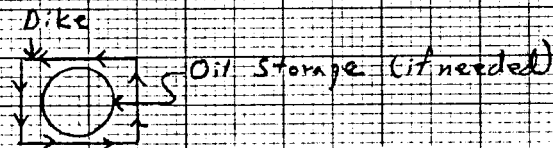 Dike
Oil Storage (if needed)